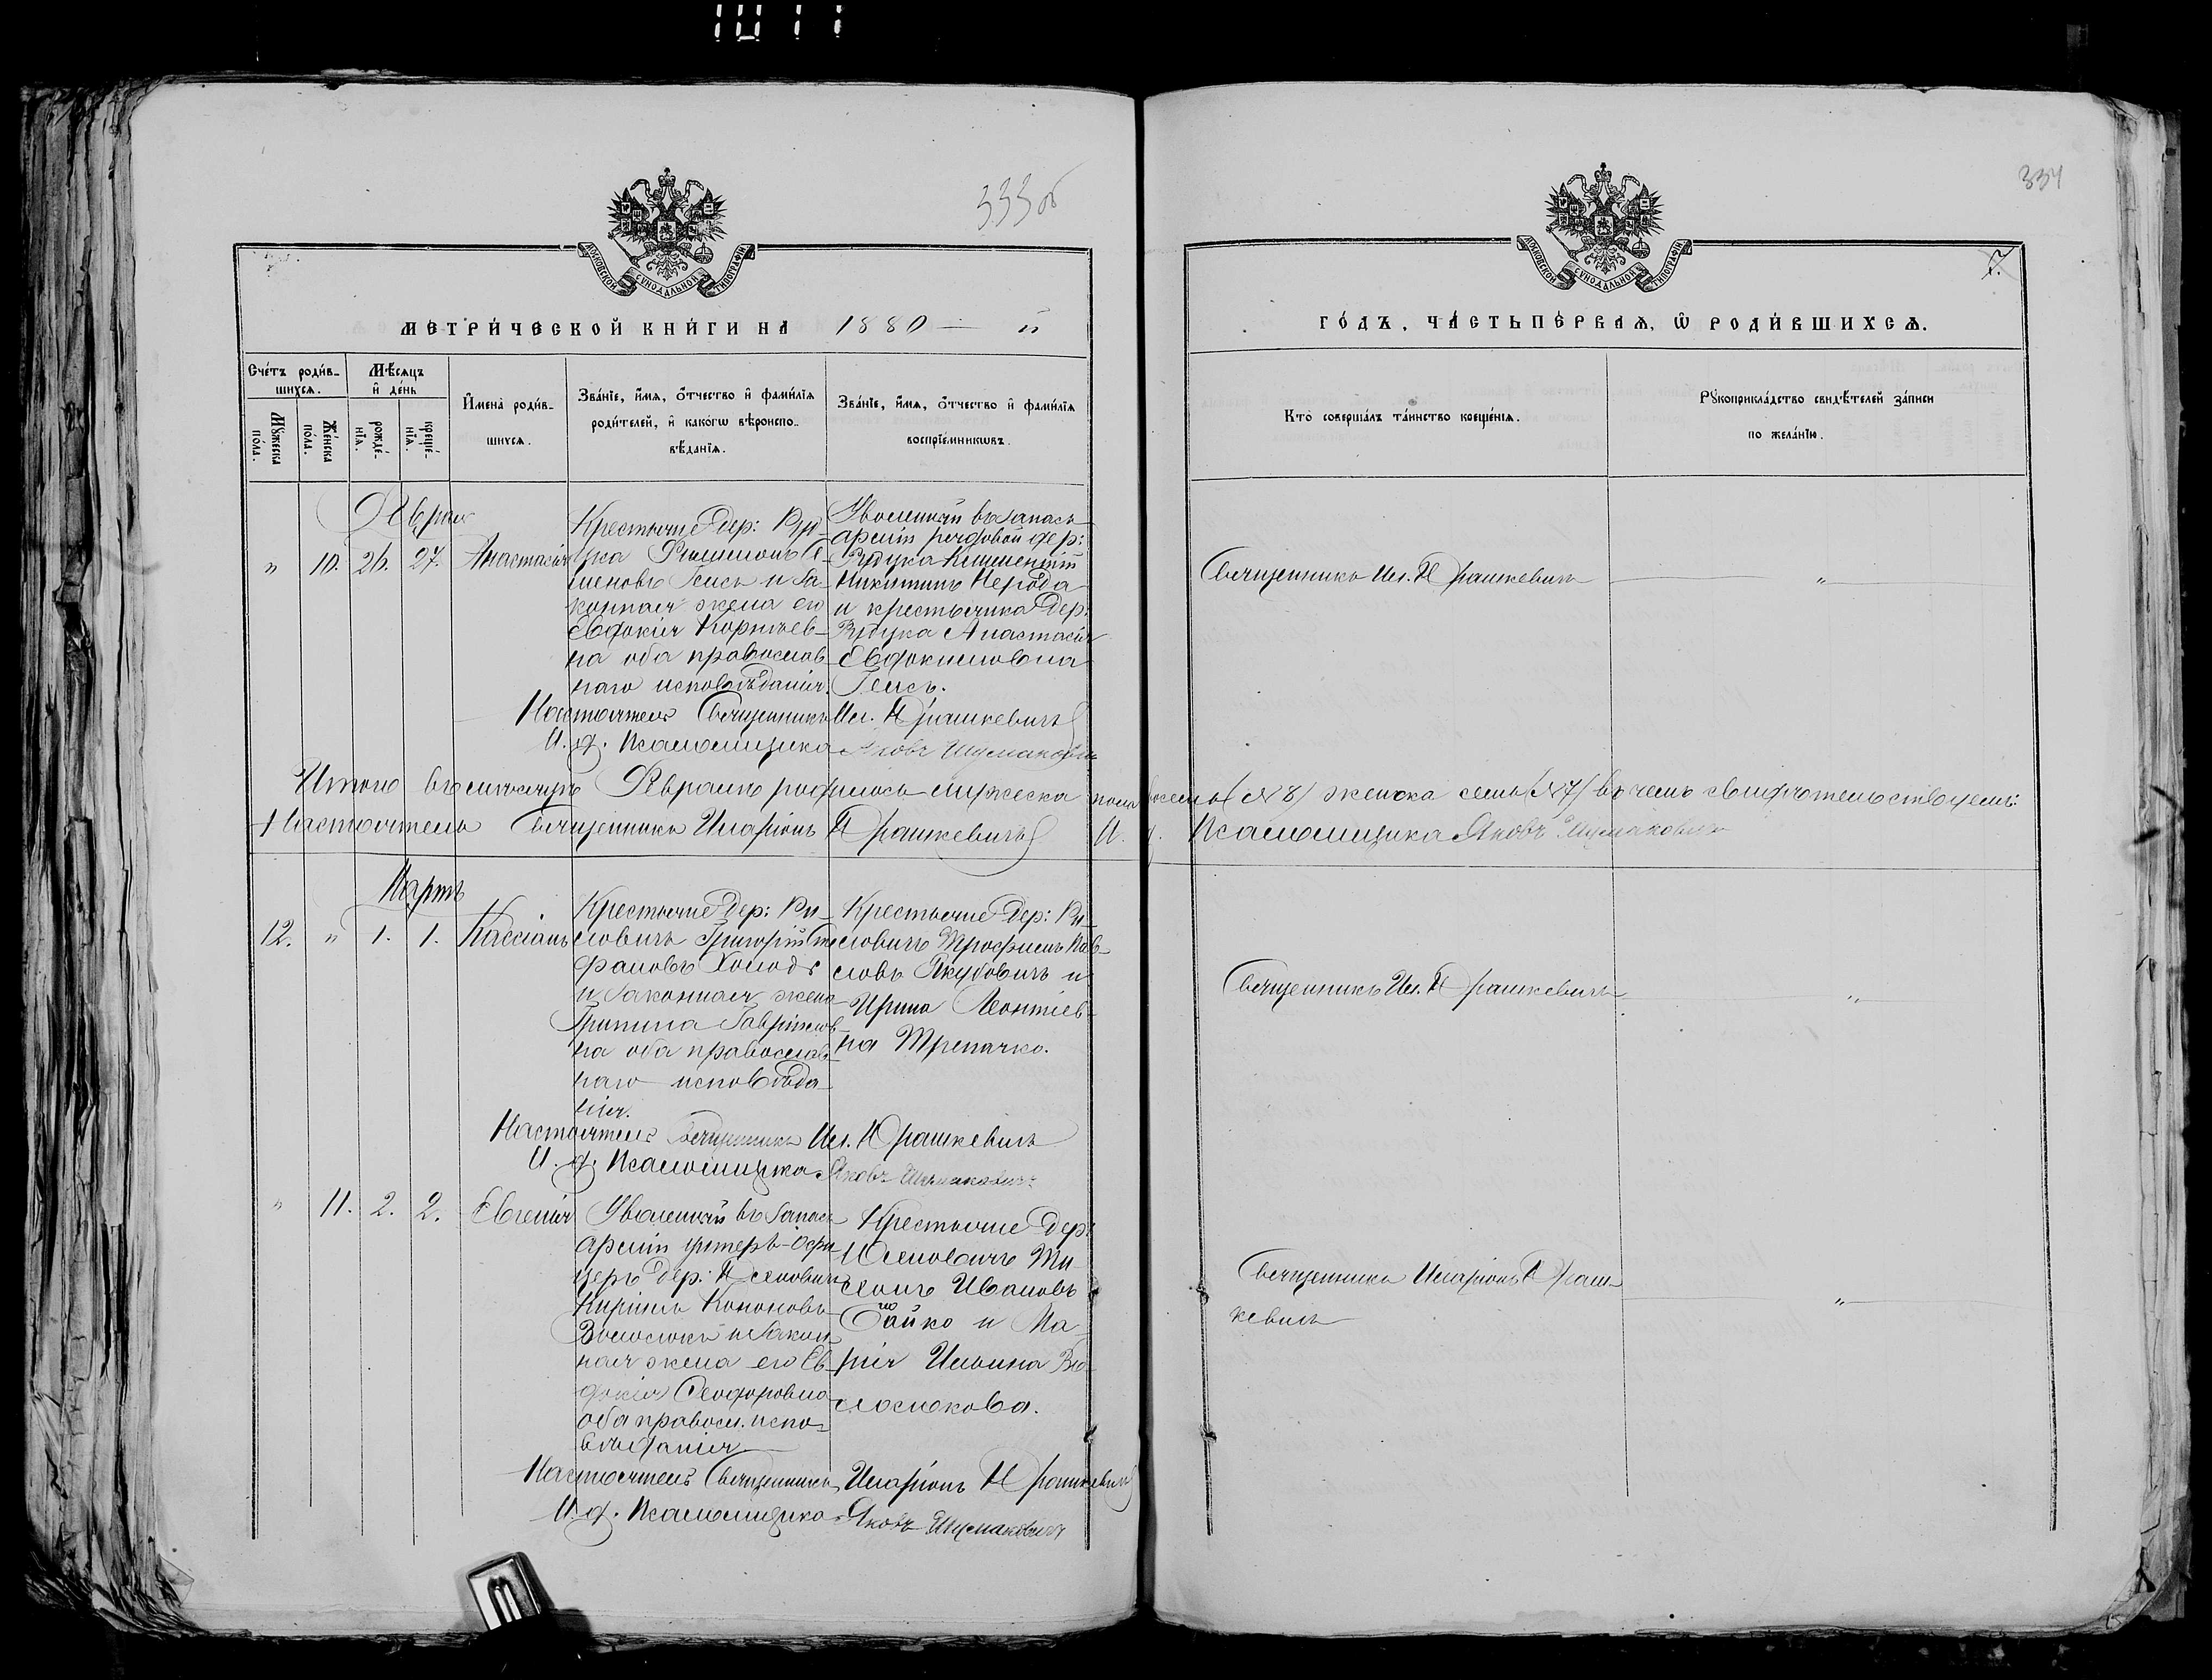 333 об
334
7.
МОСКОВСКОЙ СУНОДАЛЬНОЙ ТИПОГРАФІИ
МОСКОВСКОЙ СУНОДАЛЬНОЙ ТИПОГРАФІИ
МЕТРИ́ЧЕСКОЙ КНИ́ГИ НА 1880 — й
ГО́ДЪ, ЧА́СТЬ ПЕ́РВАѦ, Ѡ҆ РОДИ́ВШИХСѦ.
Сче́тъ роди́в-
шихсѧ.
Мꙋжеска по́ла.
Же́нска по́ла.
Мѣ́сѧцъ
и҆ де́нь
рожде́-нїѧ.
креще́-нїѧ.
И҆мена̀ роди́в-
шихсѧ.
Зва́нїе, и҆́мѧ, ѻ҆́тчество и҆ фамѝлїѧ
роди́телей, и҆ како́гѡ вѣроиспо-
вѣ́данїѧ.
Зва́нїе, и҆́мѧ, ѻ҆́тчество и҆ фамѝлїѧ
воспрїе́мникѡвъ.
Кто̀ соверша́лъ та́инство креще́нїѧ.
Рꙋкоприкла́дство свидѣ́телей за́писи
по жела́нїю.
Февраль
" 10. 26. 27. Анастасія
Крестьяне дер:
Филимонъ Се-
меновъ Гельсъ и за-
конная жена его
Евдокія Корнѣев-
на оба православ-
наго исповѣданія.
Уволенный въ запасъ
арміи рядовой дер:
Климентій
Никитинъ Нерода
и крестьянка дер:
Анастасія
Евдокимовна
Гельсъ.
Священникъ Ил. Юрашкевичъ
"
Настоятель Священникъ Ил. Юрашкевичъ
И. д. Псаломщика Яковъ Шумаковичъ
Итого въ мѣсяцѣ Февралѣ родилось мужеска пола восемь (№ 8) женска семь (№ 7) въ чемъ свидѣтельствуемъ:
Настоятель Священникъ Иларіонъ Юрашкевичъ И. д. Псаломщика Яковъ Шумаковичъ
Мартъ
12. " 1. 1. Кассіанъ
Крестьяне дер:
Григорій Сте-
фановъ Холодъ
и законная жена
Гриппина Гаврилов-
на оба православ-
наго исповѣда-
нія.
Крестьяне дер:
Трофимъ Пав-
ловъ Якубовичъ и
Ирина Леонтіев-
на Трепачко.
Священникъ Ил. Юрашкевичъ
"
Настоятель Священникъ Ил. Юрашкевичъ
И. д. Псаломщика Яковъ Шумаковичъ
" 11. 2. 2. Евгенія
Уволенный въ запасъ
арміи унтеръ-офи-
церъ дер:
Кириллъ Кононовъ
Волосюкъ и закон-
ная жена его Ев-
докія Ѳеодоровна
оба правосл. испо-
вѣданія
Крестьяне дер:
Ивановъ
и Ма-
рія Ильина Во-
лосюкова.
Священникъ Иларіонъ Юраш-
кевичъ
"
Настоятель Священникъ Иларіонъ Юрашкевичъ
И. д. Псаломщика Яковъ Шумаковичъ